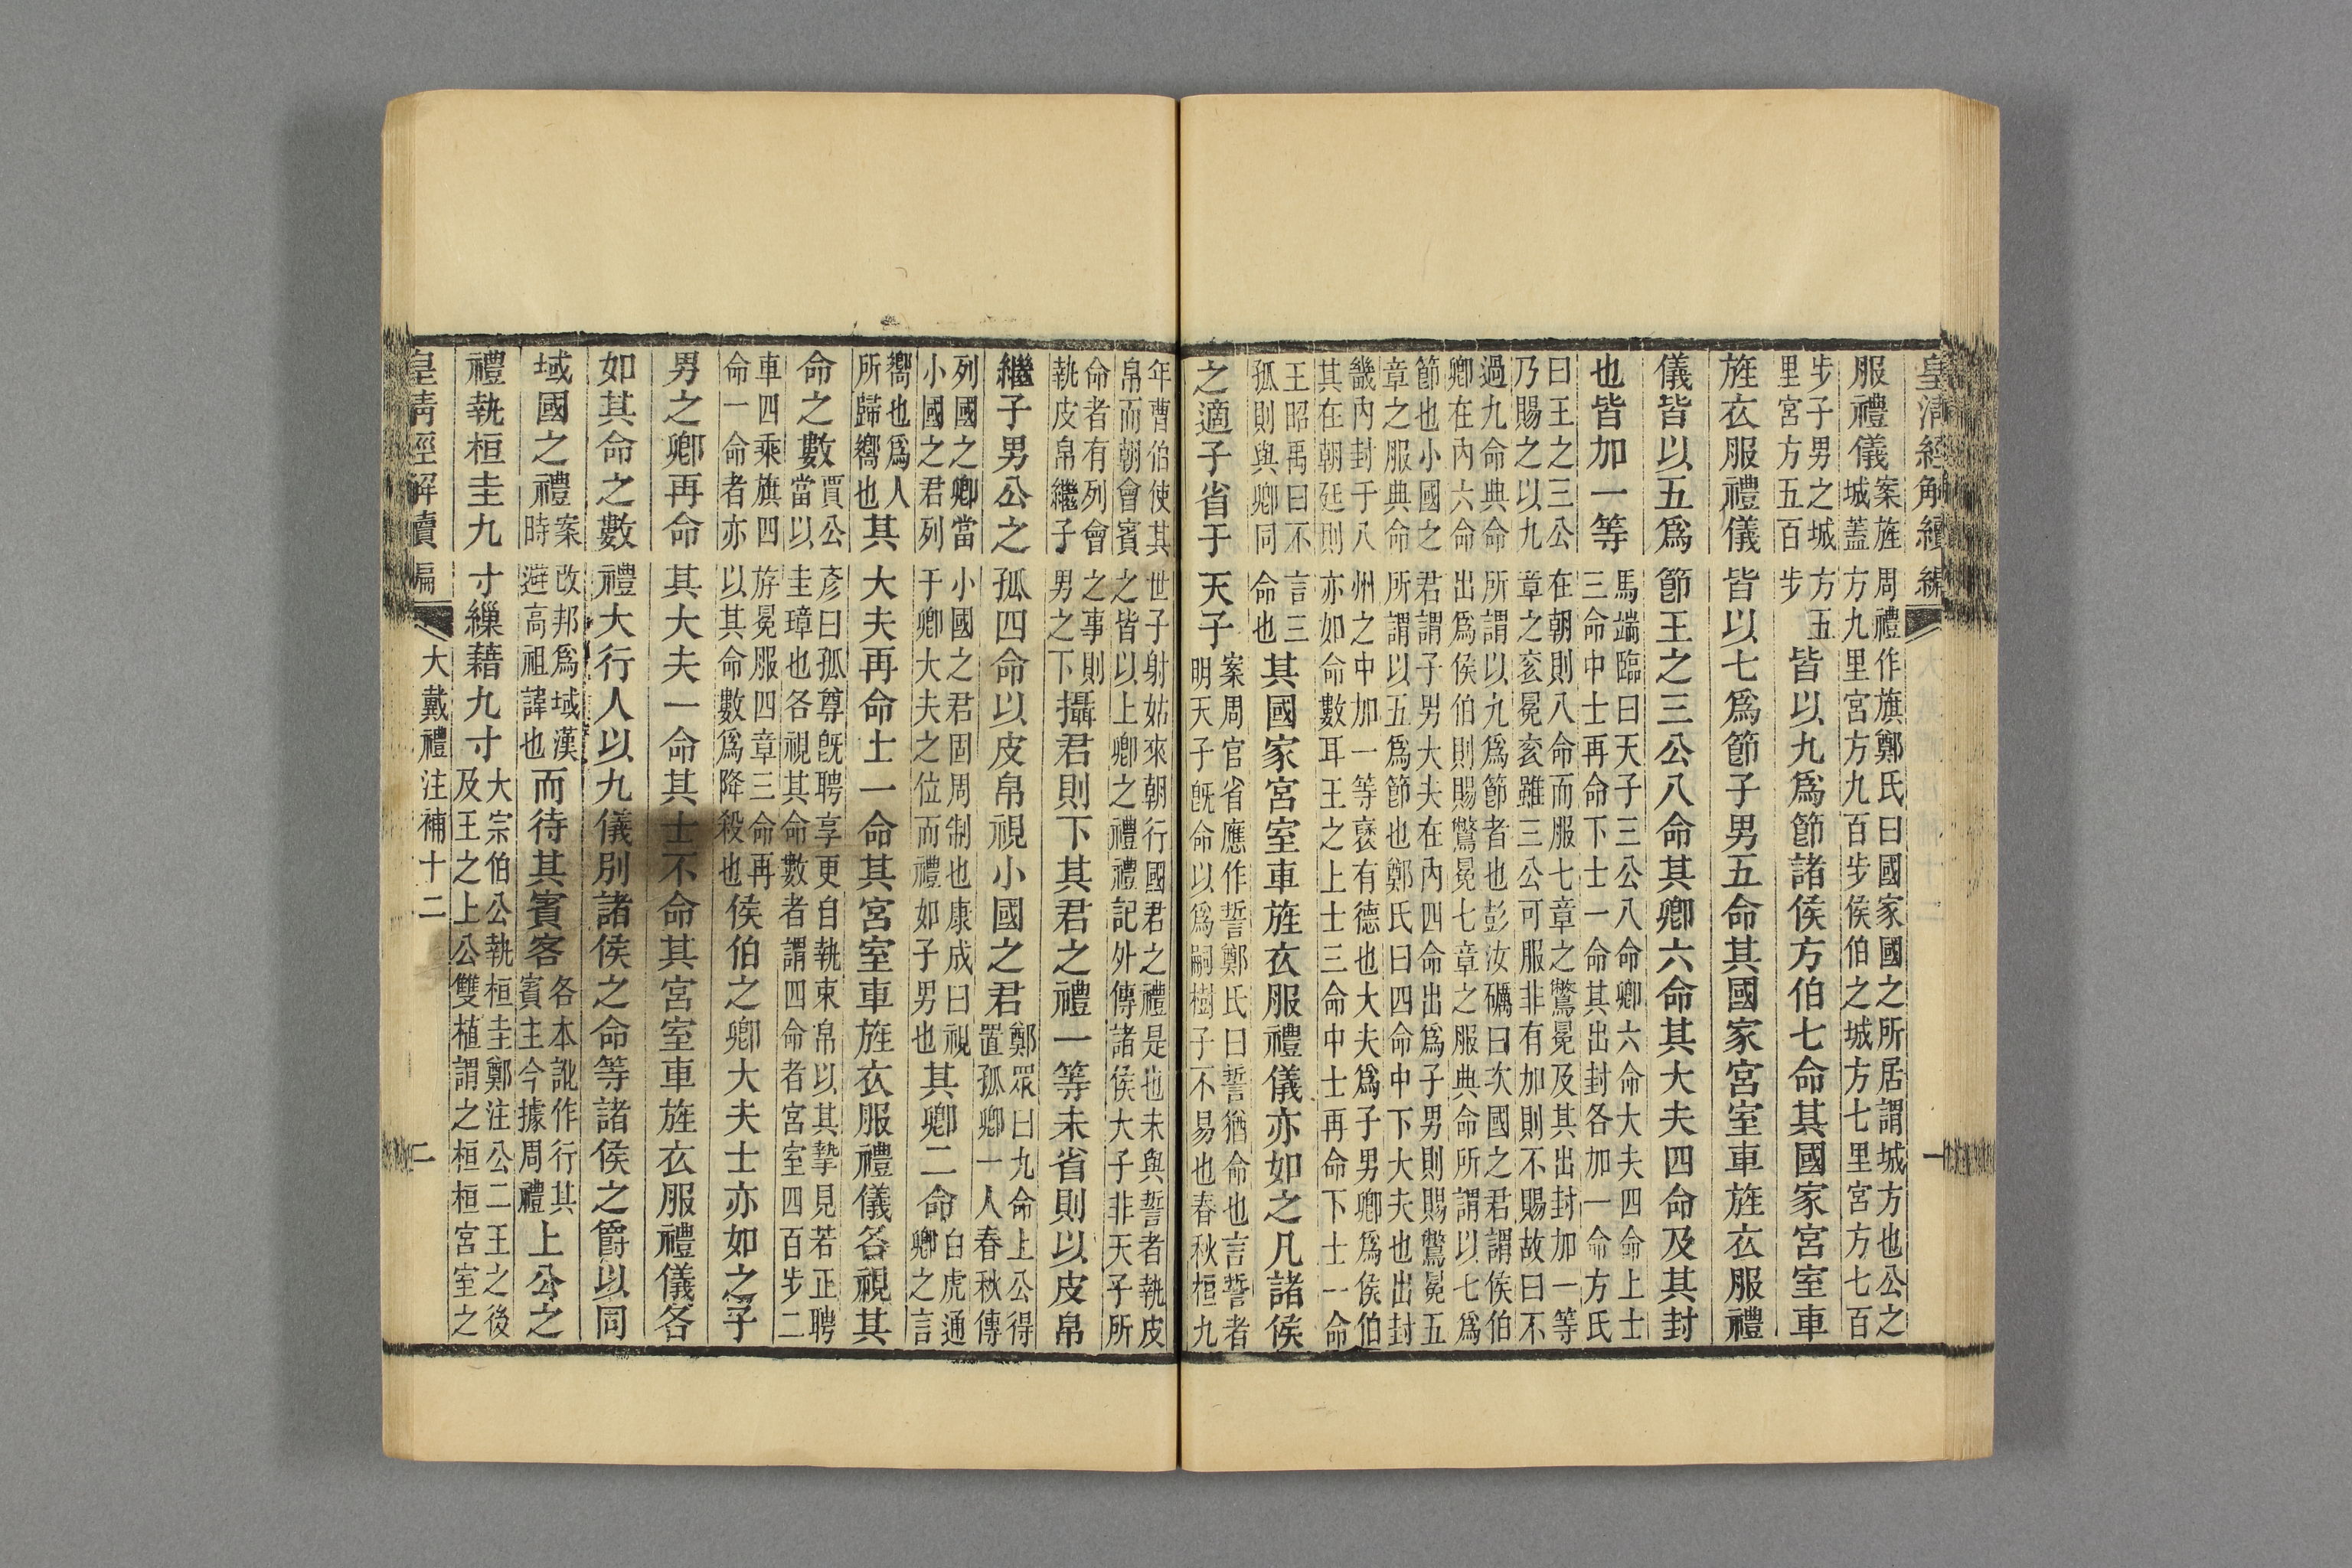 皇清經解續編 一
服禮儀案旌周禮作旗鄭氏曰國家國之所居謂城方也公之
城蓋方九里宮方九百步侯伯之城方七里宮方七百
步子男之城方五
里宮方五百步
皆以九爲節諸侯方伯七命其國家宮室車
旌衣服禮儀皆以七爲節子男五命其國家宮室車旌衣服禮
儀皆以五爲節王之三公八命其卿六命其大夫四命及其封
也皆加一等馬端臨曰天子三公八命卿六命大夫四命上士
三命中士再命下士一命其出封各加一命方氏
曰王之三公在朝則八命而服七章之鷩冕及其出封加一等
乃賜之以九章之衮冕衮雖三公可服非有加則不賜故曰不
過九命典命所謂以九爲節者也彭汝礪曰次國之君謂侯伯
卿在內六命出爲侯伯則賜鷩冕七章之服典命所謂以七爲
節也小國之君謂子男大夫在內四命出爲子男則賜鷩冕五
章之服典命所謂以五爲節也鄭氏曰四命中下大夫也出封
畿內封于八州之中加一等襃有德也大夫爲子男卿爲侯伯
其在朝廷則亦如命數耳王之上士三命中士再命下士一命
王昭禹曰不言三
孤則與卿同命也
其國家宮室車旌衣服禮儀亦如之凡諸侯
之適子省于天子案周官省應作誓鄭氏曰誓猶命也言誓者
明天子旣命以爲嗣樹子不易也春秋桓九
年曹伯使其世子射姑來朝行國君之禮是也未與誓者執皮
帛而朝會賓之皆以上卿之禮禮記外傳諸侯大子非天子所
命者有列會之事則
執皮帛繼子男之下
攝君則下其君之禮一等未省則以皮帛
繼子男公之孤四命以皮帛視小國之君鄭眾曰九命上公得
置孤卿一人春秋傳
列國之卿當小國之君固周制也康成曰視
小國之君列于卿大夫之位而禮如子男也
其卿二命白虎通
卿之言
嚮也爲人
所歸嚮也
其大夫再命士一命其宮室車旌衣服禮儀各視其
命之數賈公彥曰孤尊旣聘享更自執束帛以其摯見若正聘
當以圭璋也各視其命數者謂四命者宮室四百步二
車四乘旗四斿冕服四章三命再
命一命者亦以其命數爲降殺也
侯伯之卿大夫士亦如之子
男之卿再命其大夫一命其士不命其宮室車旌衣服禮儀各
如其命之數禮大行人以九儀別諸侯之命等諸侯之爵以同
域國之禮案改邦爲域漢
時避高祖諱也
而待其賓客各本訛作行其
賓主今據周禮
上公之
禮執桓圭九寸繅藉九寸大宗伯公執桓圭鄭注公二王之後
及王之上公雙植謂之桓桓宮室之
皇清經解續編 大戴禮注補十二 二